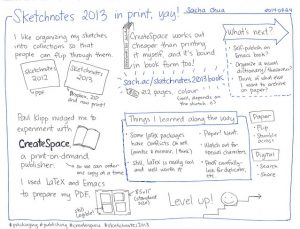 Sketchnotes 2013 in print, yay!
Sacha Chua
I like organizing my sketches
into collections so that
people can flip through them.
Sketchnotes
2012
Sketchnotes
2013
CreateSpace works out
cheaper than printing
it myself, and it's bound
in book form too!
sach.ac/sketchnotes2013book
212 pages, colour
What's next?
Self-publish an
Emacs book?
Organize a visual
dictionary/thesaurus?
Think of what else
I want to archive
on paper!
Paul Klipp nudged me to
experiment with
CreateSpace,
a print-on-demand
publisher.
so we can order
one copy at a time
I used LaTeX and Emacs
to prepare my PDF.
Things I learned along the way
Some LaTeX packages
have conflicts.
Still, LaTeX is really cool
and well worth it
Paper! Want.
Watch out for
special characters
Proof carefully-
look for duplicates,
etc.
Paper
Flip
Stumble
across
Digital
Search
Share
8.5x11"
still
legible!
Level up!
#packaging #publishing #createspace #sketchnotes2013